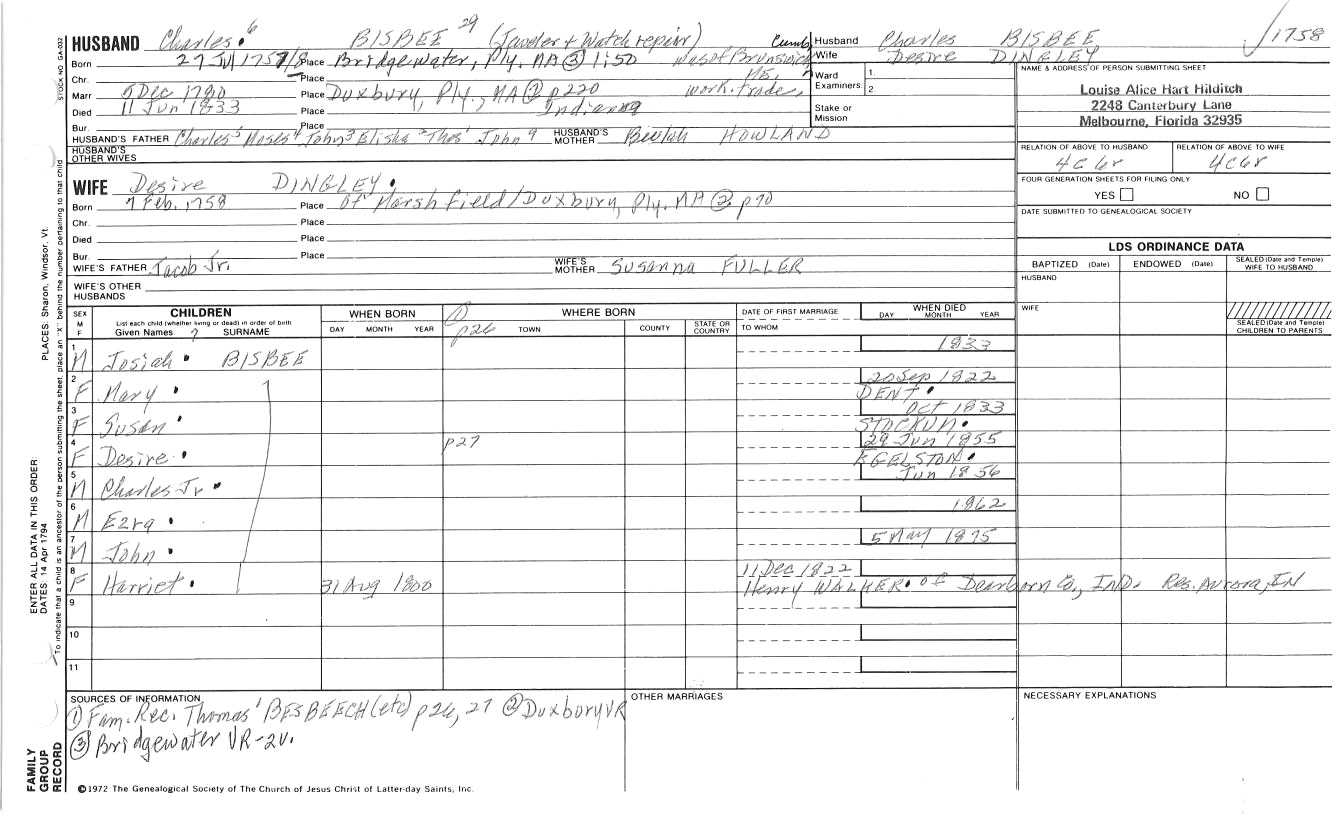 HUSBAND Charles 6 BISBEE 29 (Jeweler + Watch repair) Cumb
Born 27 Jul 1757/8 Place Bridgewater, Ply. MA ③ 1:50 was of Brunswick ME,
Chr. Place work. trade,
Marr 5 Dec 1780 Place Duxbury, Ply., MA ② p220
Died 11 Jun 1833 Place Indiana
Bur. Place
HUSBAND'S FATHER Charles 5 Moses 4 John 3 Elisha 2 Thos 1 John 9 HUSBAND'S MOTHER Beulah HOWLAND
HUSBAND'S OTHER WIVES
WIFE Desire DINGLEY
Born 7 Feb. 1758 Place of Marshfield/Duxbury, Ply. MA ② p70
Chr. Place
Died Place
Bur. Place
WIFE'S FATHER Jacob Jr. WIFE'S MOTHER Susanna FULLER
WIFE'S OTHER HUSBANDS
Husband Charles BISBEE 1758
Wife Desire DINGLEY
Ward Examiners 1. 2
Stake or Mission
NAME & ADDRESS OF PERSON SUBMITTING SHEET
Louise Alice Hart Hilditch
2248 Canterbury Lane
Melbourne, Florida 32935
RELATION OF ABOVE TO HUSBAND RELATION OF ABOVE TO WIFE
4C6r 4C6r
FOUR GENERATION SHEETS FOR FILING ONLY
YES NO
DATE SUBMITTED TO GENEALOGICAL SOCIETY
LDS ORDINANCE DATA
BAPTIZED (Date) ENDOWED (Date) SEALED (Date and Temple) WIFE TO HUSBAND
HUSBAND
WIFE
SEALED (Date and Temple) CHILDREN TO PARENTS
SEX M F CHILDREN WHEN BORN ① WHERE BORN DATE OF FIRST MARRIAGE WHEN DIED
List each child (whether living or dead) in order of birth
Given Names 7 SURNAME DAY MONTH YEAR p26 TOWN COUNTY STATE OR COUNTRY TO WHOM DAY MONTH YEAR
1 M Josiah BISBEE 1833
2 F Mary 20 Sep 1822
DENT
3 F Susan Oct 1833
STOCKUM
4 F Desire p27 29 Jun 1855
EGELSTON
5 M Charles Jr Jun 1856
6 M Ezra 1862
7 M John 5 May 1875
8 F Harriet 31 Aug 1800 11 Dec 1822
Henry WALKER of Dearborn Co., IND. Res. Aurora, IN
9
10
11
SOURCES OF INFORMATION OTHER MARRIAGES NECESSARY EXPLANATIONS
① Fam. Rec. Thomas 1 BESBEECH (etc) p26, 27 ② Duxbury VR
③ Bridgewater VR-2v.
©1972 The Genealogical Society of The Church of Jesus Christ of Latter-day Saints, Inc.
STOCK NO GAA-032
PLACES: Sharon, Windsor, Vt.
ENTER ALL DATA IN THIS ORDER
DATES: 14 Apr 1794
To indicate that a child is an ancestor of the person submitting the sheet, place an "X" behind the number pertaining to that child
FAMILY
GROUP
RECORD